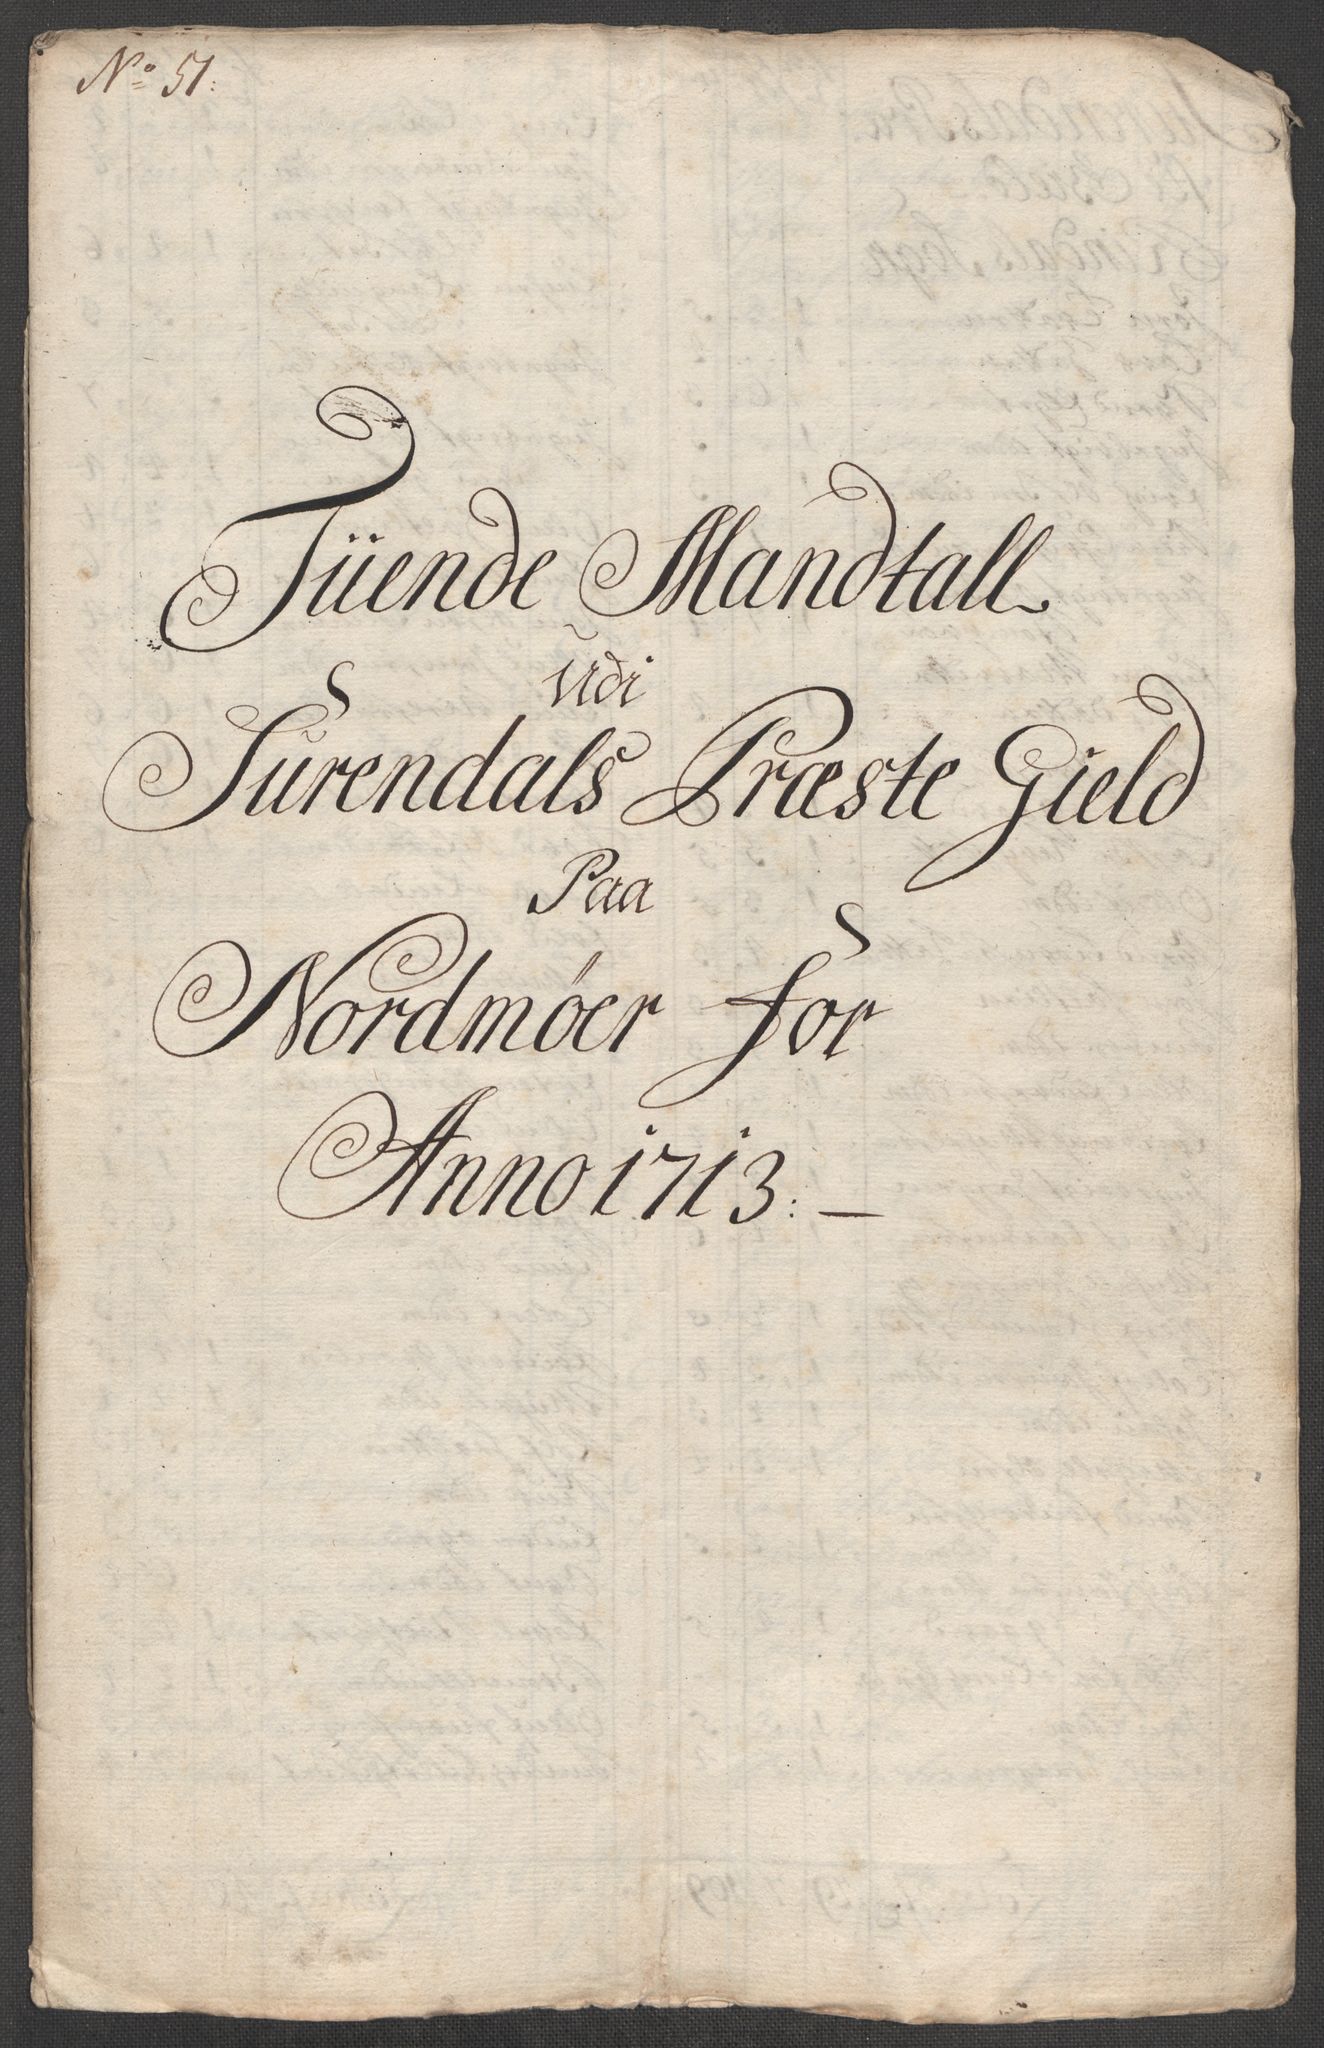 No 51:
Tüende Mandtall
Udi
Surendals Præste Gield
Paa
Nordmøer for
Anno 1713: —